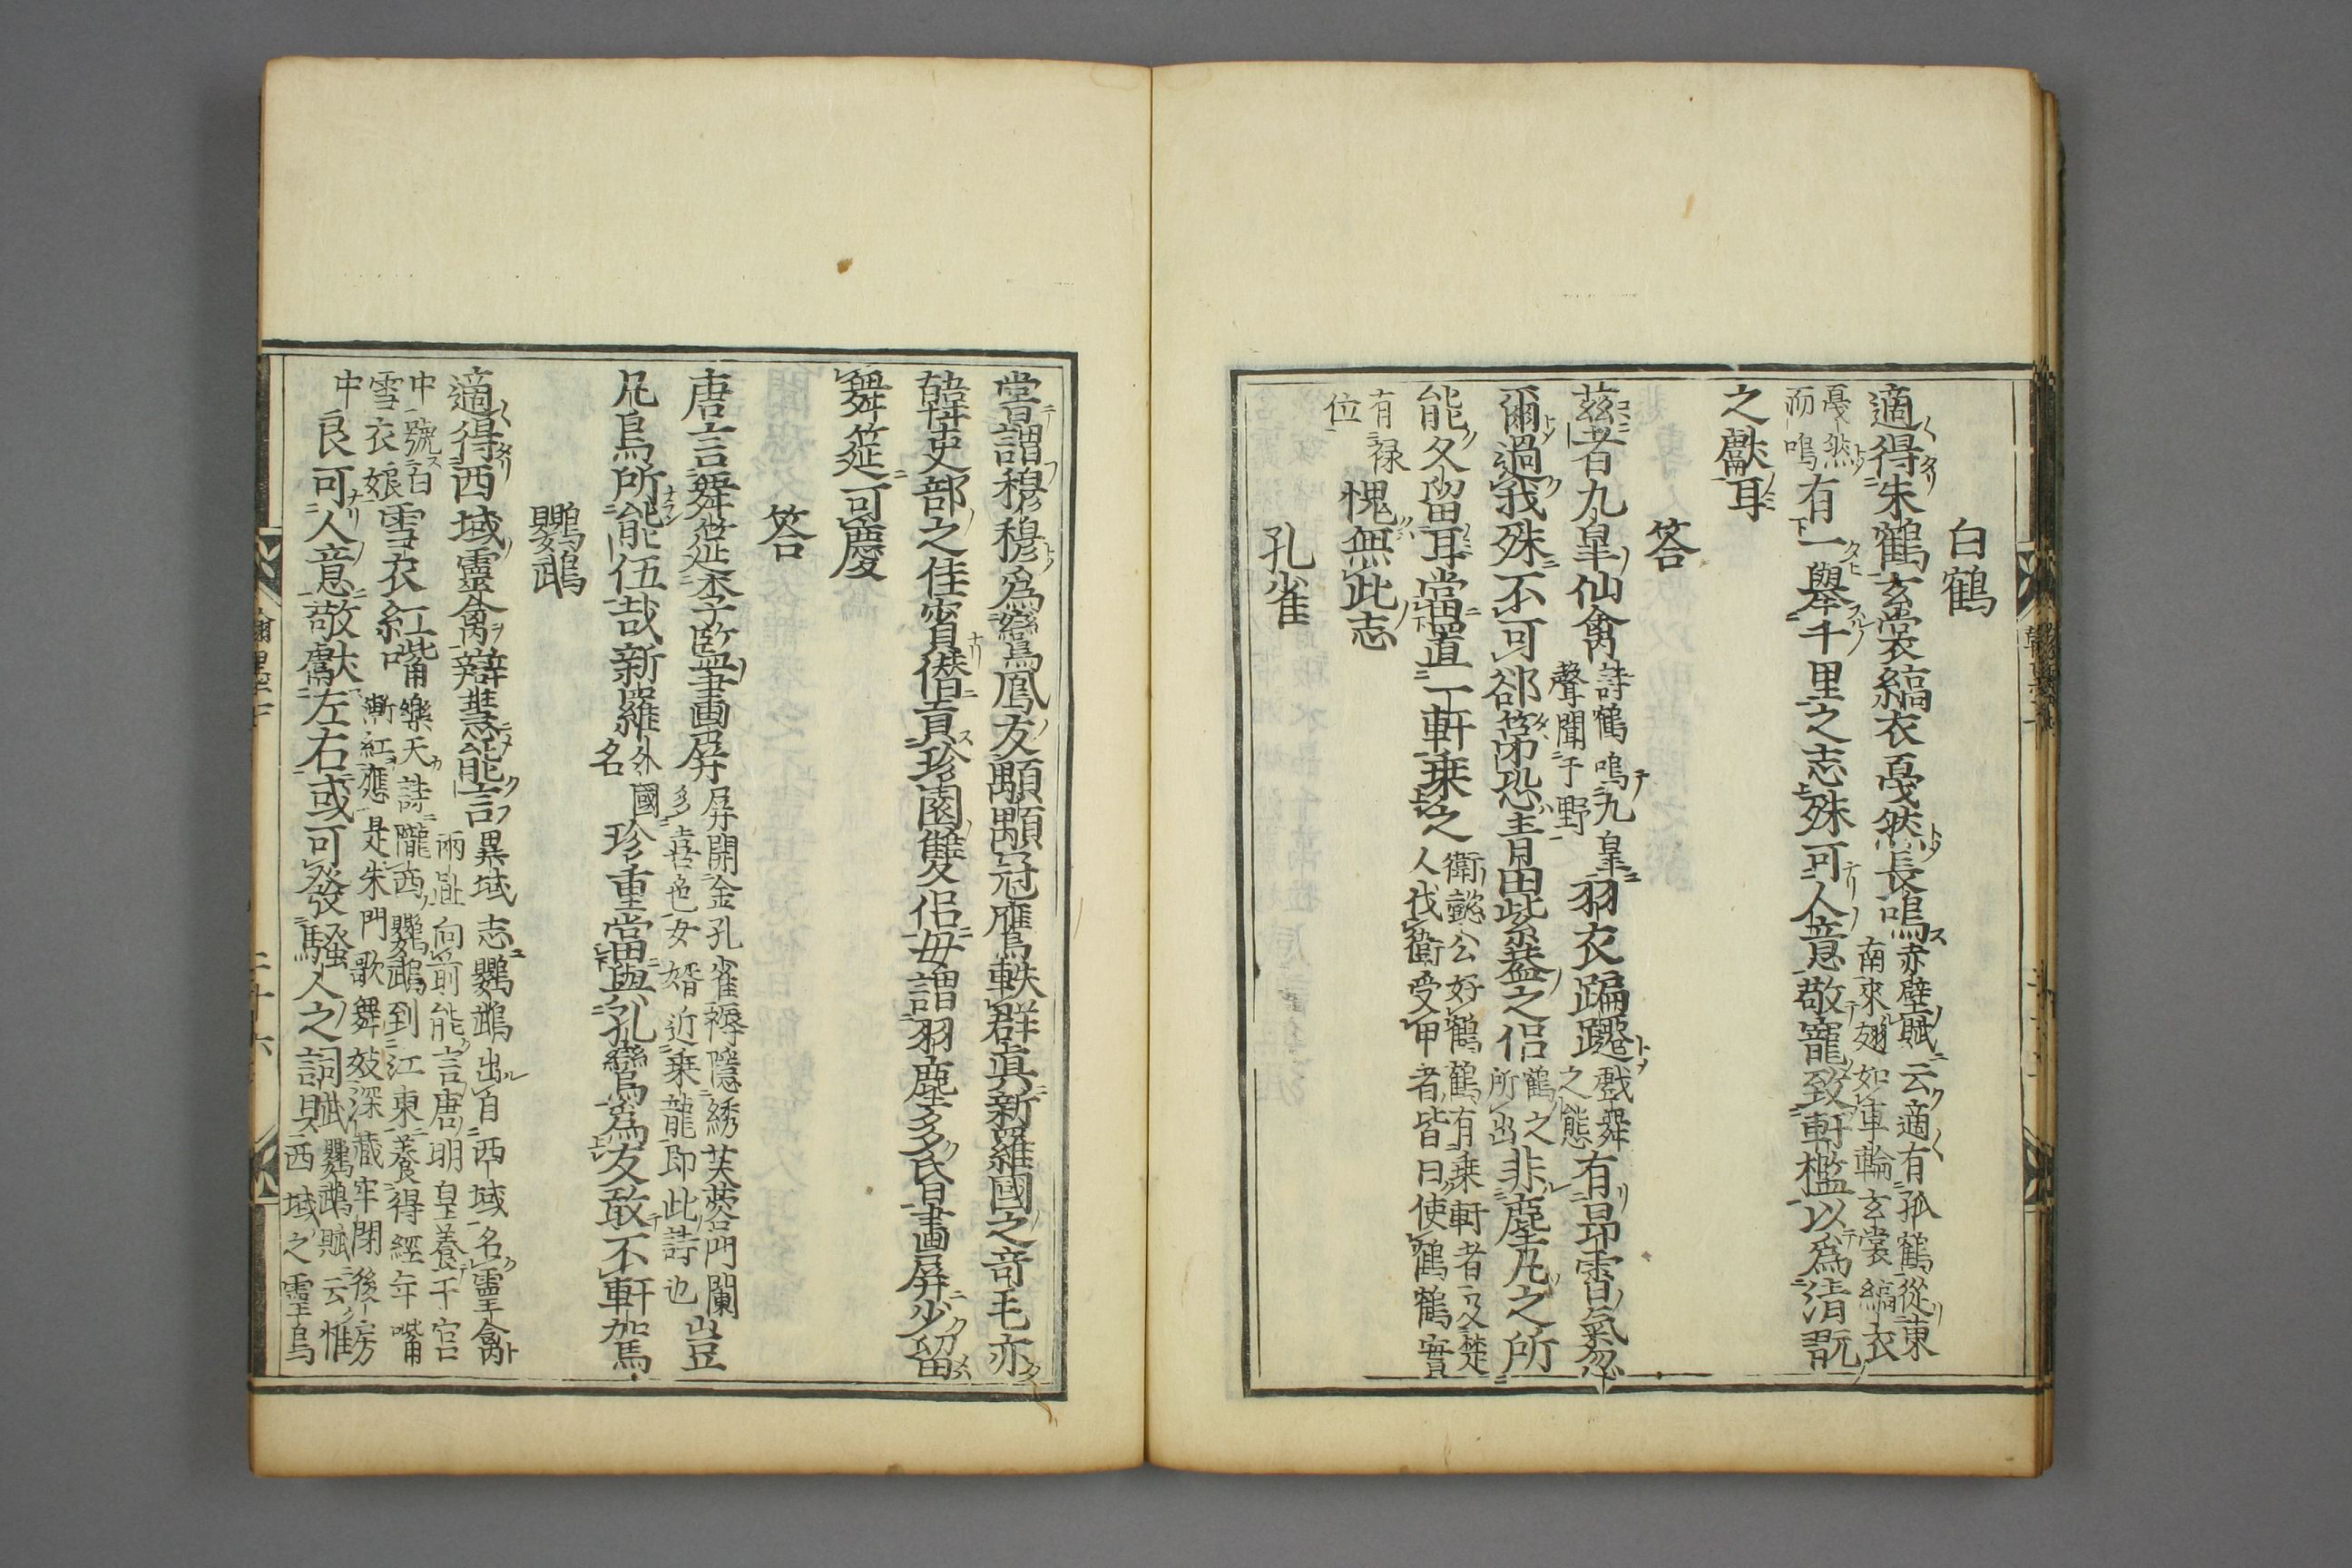 白鶴
適得朱鶴玄裳縞衣戞然長鳴赤壁賦云適有孤鶴從東南來翅如車輪玄裳縞衣
戞然而鳴有一舉千里之志殊可人意敬寵致軒檻以爲清翫
之獻耳
答
茲者九皐仙禽詩鶴鳴九皐聲聞于野羽衣蹁躚戲舞之態有昂霄氣忽
爾過我殊不可郤第恐青田紫蓋之侶鶴之所出非塵凡之所
能久留耳當置一軒乗之衛懿公好鶴鶴有乗軒者及楚人伐衛受甲者皆曰使鶴鶴實
有禄位愧無此志
孔雀
嘗謂穆穆爲鸞鳳友顒顒冠鷹軼群真新羅國之竒毛亦
韓吏部之佳賓僣貢珍園雙侶毋謂羽塵多氏旦畫屏少留
舞筵可慶
答
唐言舞筵柰字監畫屏屏開金孔雀褥隱綉芙蓉門闌多喜色女婿近乗龍即此詩也豈
凡鳥所能伍哉新羅外國名珍重當與孔鸞爲友敢不軒駕
鸚鵡
適得西域靈禽辯慧能言異域志鸚鵡出自西域名靈禽兩趾向前能言唐明皇養于宮
中號白雪衣娘雪衣紅嘴樂天詩隴西鸚鵡到江東養得經年嘴漸紅應是朱門歌舞妓深藏牢閉後房
中良可人意敬獻左右或可發騷人之詞賦鸚鵡賦云惟西域之靈鳥
二十六